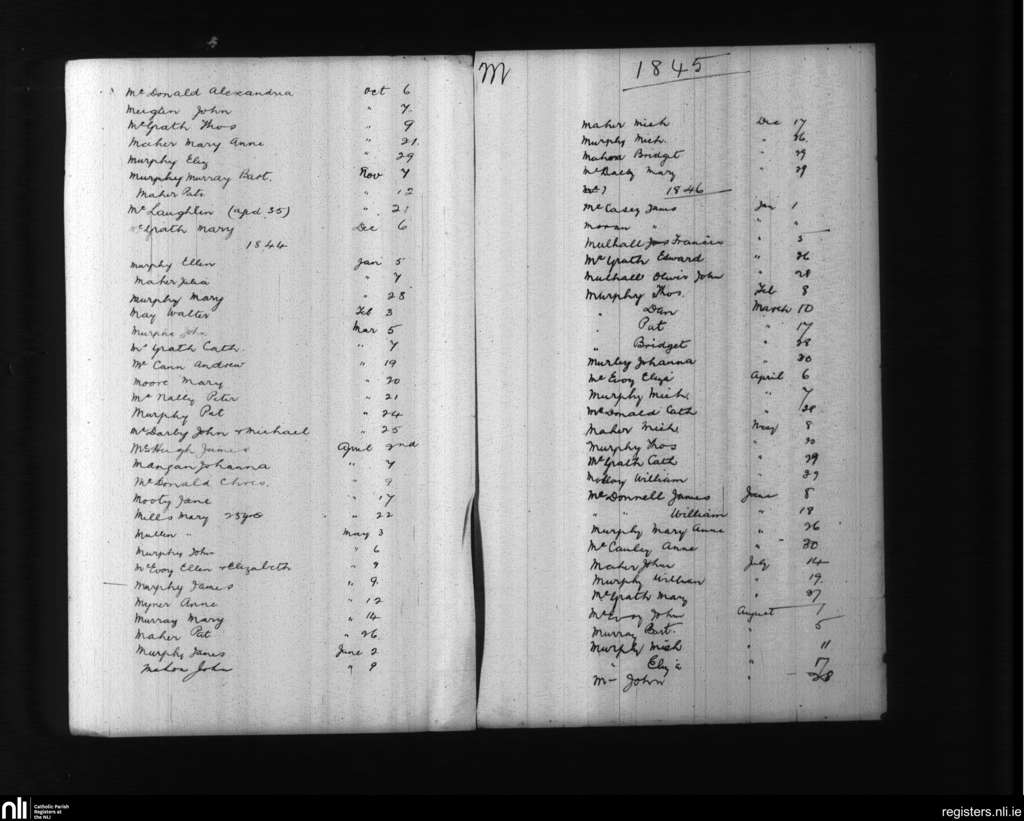 Mc Donald Alexandria Oct 6
Meighen John " 7
Mc Grath Thos " 9
Maher Mary Anne " 21.
Murphy Eliz " 29
Murphy Murray Bart. Nov 7
Maher Pat " 12
Mc Laughlin (aged 35) " 21
Mc Grath Mary Dec 6
1844
Murphy Ellen Jan 5
Maher Julia " 7
Murphy Mary " 28
May Walter Feb 3
Murphy John Mar 5
Mc Grath Cath. " 7
Mc Cann Andrew " 19
Moore Mary " 20
Mc Nally Peter " 21
Murphy Pat " 24
Mc Darby John & Michael " 25
McHugh James April 2nd
Mangan Johanna " 7
Mc Donald Chris. " 9
Mooty Jane " 17
Mills Mary 25 yrs " 22
Mullin " May 3
Murphy John " 6
McEvoy Ellen & Elizabeth " 9
Murphy James " 9.
Myner Anne " 12
Murray Mary " 14
Maher Pat " 26.
Murphy James June 2
Mahon John " 9
M 1845
Maher Mich Dec 17
Murphy Mich. " 26.
Mahon Bridget " 29
Mary " 29
1846
Mc Casey James Jan 1
Moran " " "
Mulhall Jas Francis "
Mc Grath Edward " 26
Mulhall Oliver John " 28
Murphy Thos. Feb 8
" Dan March 10
" Pat " 17
" Bridget " 28
Murley Johanna " 30
Mc Evoy Eliza April 6
Murphy Mich. " 7
Mc Donald Cath " 28
Maher Mich May 8
Murphy Thos "
Mc Grath Cath " 29
Molloy William " 29
Mc Donnell James June 8
" " William " 18
Murphy Mary Anne " 26
Mc Cauley Anne " 30
Maher John July 14
Murphy William " 19.
Mc Grath Mary " 27
Mc Evoy John August 1
Murray Bart. " 5
Murphy Mich " 11
" Eliza " 17
M— John " 28
nli Catholic Parish
Registers at
the NLI
registers.nli.ie